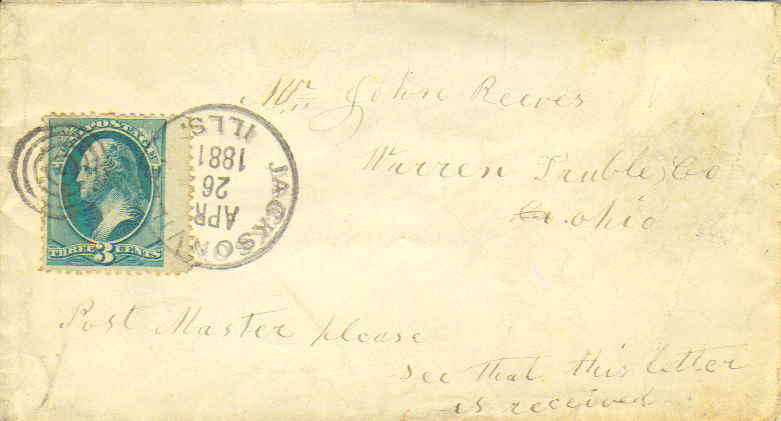 Mr. John Reeves
Warren Truble, Co
O. ohio
U.S. POSTAGE
THREE 3 CENTS
JACKSONVI
ILLS.
APR
26
1881
Post Master please
see that this letter
is received